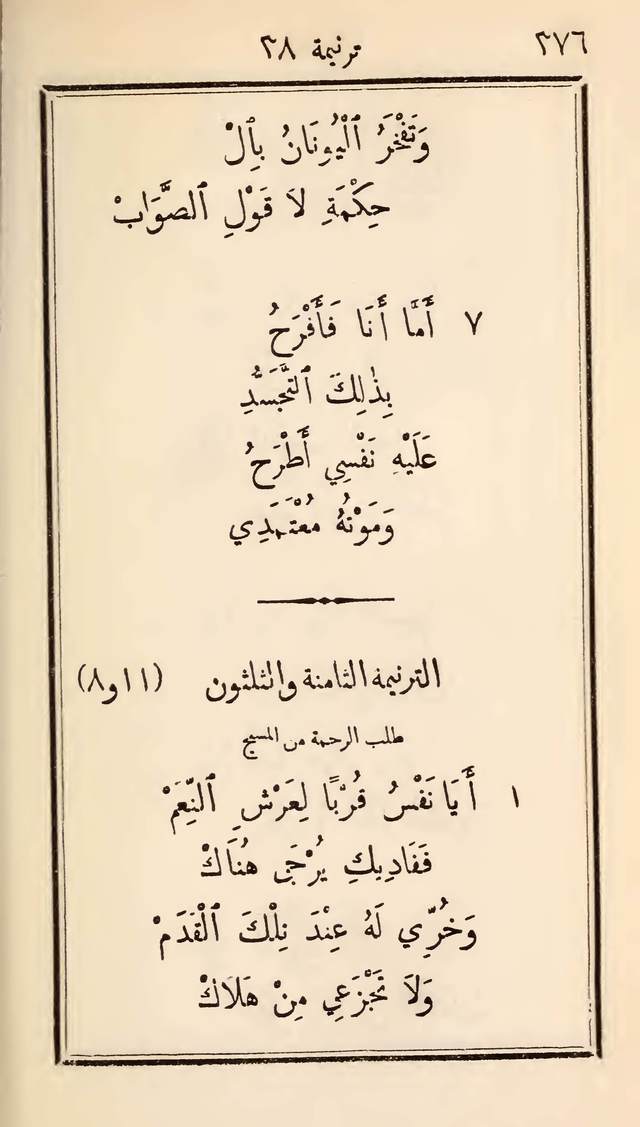 ٣٧٦ ترنيمة ٣٨
وَتَفْخَرُ ٱلْيُونَانُ بِٱلْ
حِكْمَةِ لاَ قَوْلِ ٱلصَّوَابْ
٧ أَمَّا أَنَا فَأَفْرَحُ
بِذٰلِكَ ٱلتَّجَسُّدِ
عَلَيْهِ نَفْسِي أَطْرَحُ
وَمَوْتُهُ مُعْتَمَدِي
الترنيمة الثامنة والثلثون (١١ و٨)
طلب الرحمة من المسيح
١ أَيَا نَفْسُ قُرْبًا لِعَرْشِ ٱلنِّعَمْ
فَفَادِيكِ يُرْجَى هُنَاكْ
وَخُرِّي لَهُ عِنْدَ تِلْكَ ٱلْقَدَمْ
وَلاَ تَجْزَعِي مِنْ هَلاَكْ